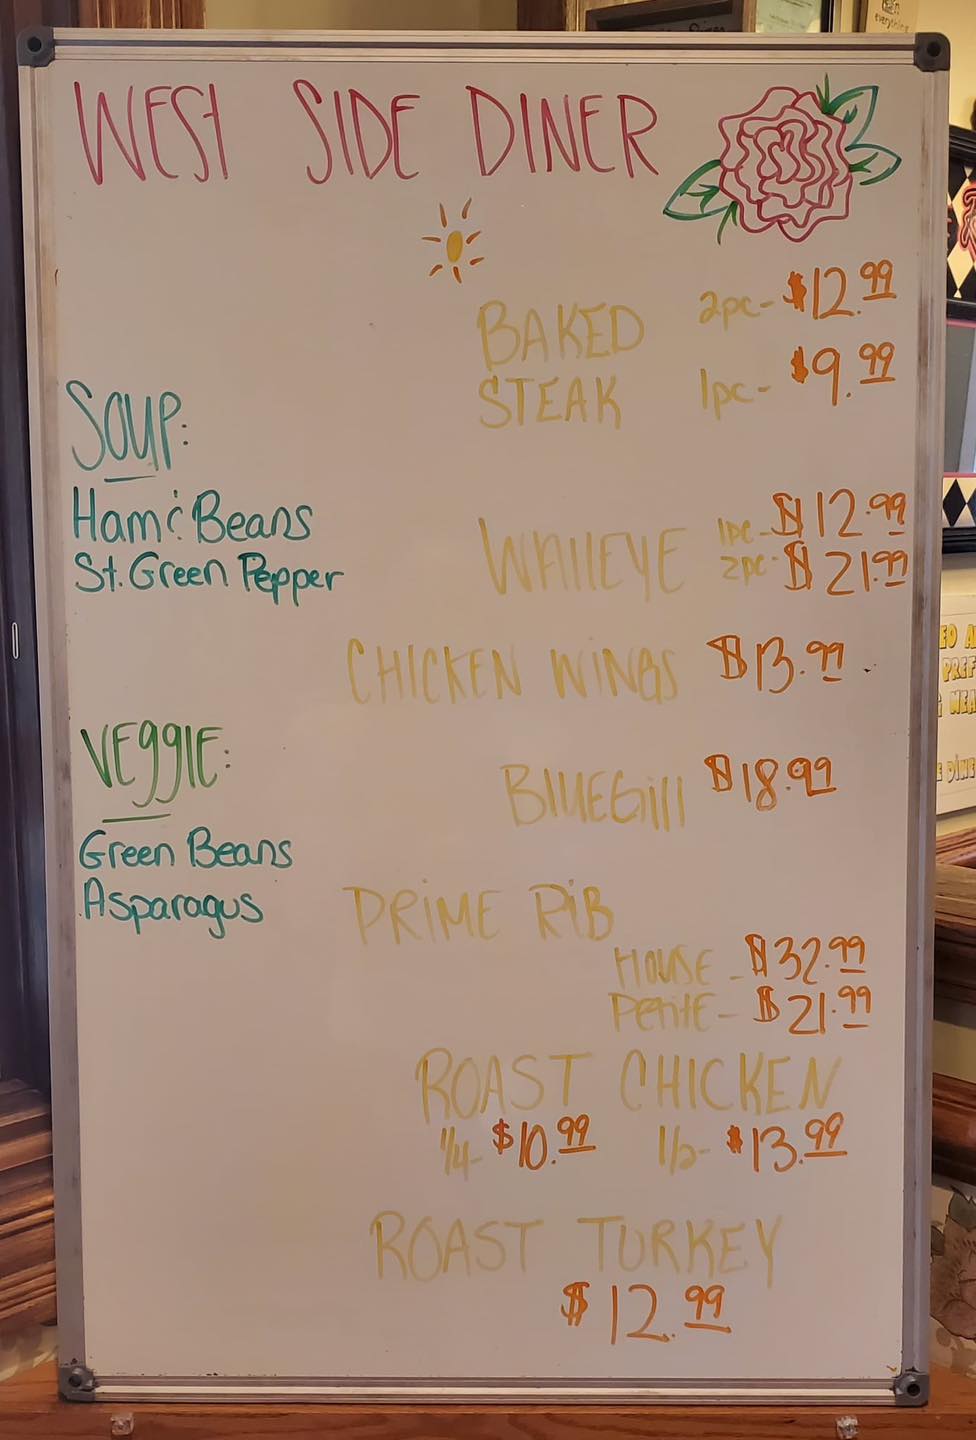 WEST SIDE DINER
BAKED STEAK
2pc- $12.99
1pc- $9.99
SOUP:
Ham & Beans
St. Green Pepper
WAllEYE
1pc- $12.99
2pc- $21.99
CHICKEN WiNGS $13.99
VEggIE:
Green Beans
Asparagus
BlUEGill $18.99
PRiME RiB
HOUSE - $32.99
PetitE - $21.99
ROAST CHICKEN
1/4- $10.99 1/2- $13.99
ROAST TURKEY
$12.99